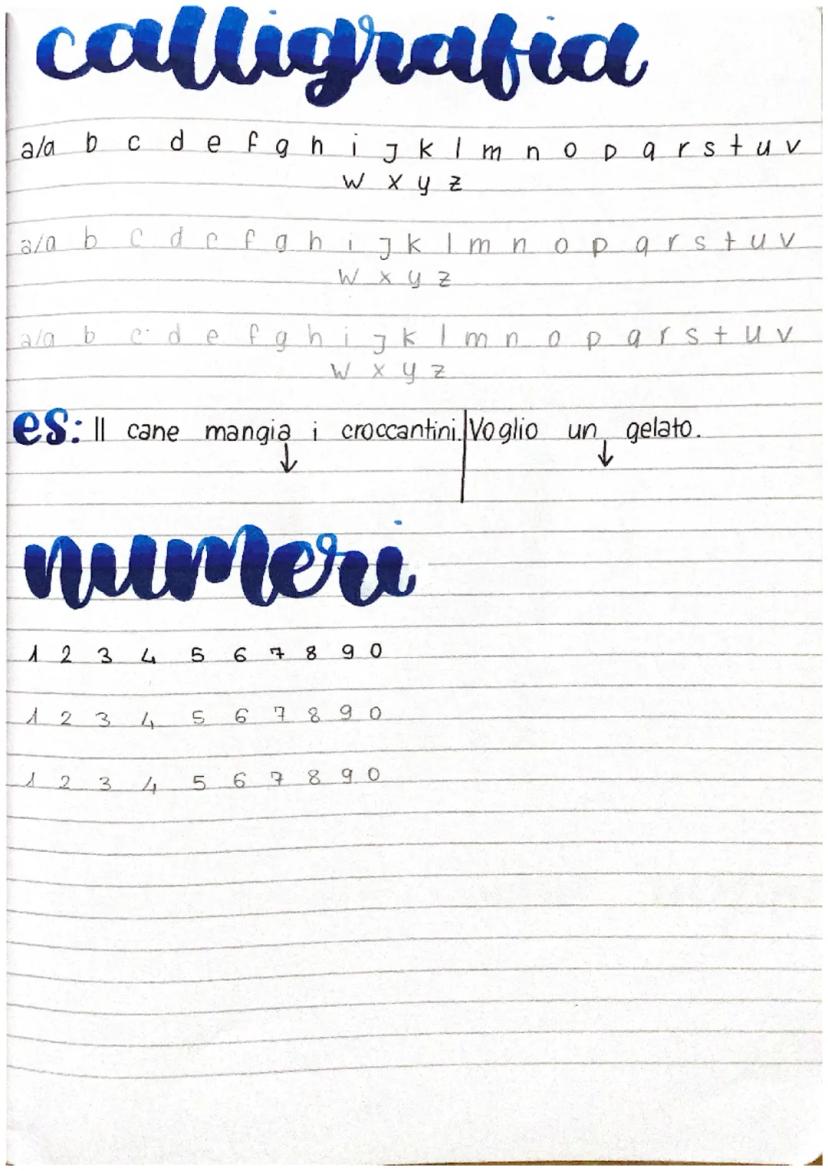 calligrafia
a/a b c d e f g h i j k l m n o p q r s t u v
w x y z
a/a b c d e f g h i j k l m n o p q r s t u v
w x y z
a/a b c d e f g h i j k l m n o p q r s t u v
w x y z
es: Il cane mangia i croccantini. Voglio un gelato.
numeri
1 2 3 4 5 6 7 8 9 0
1 2 3 4 5 6 7 8 9 0
1 2 3 4 5 6 7 8 9 0